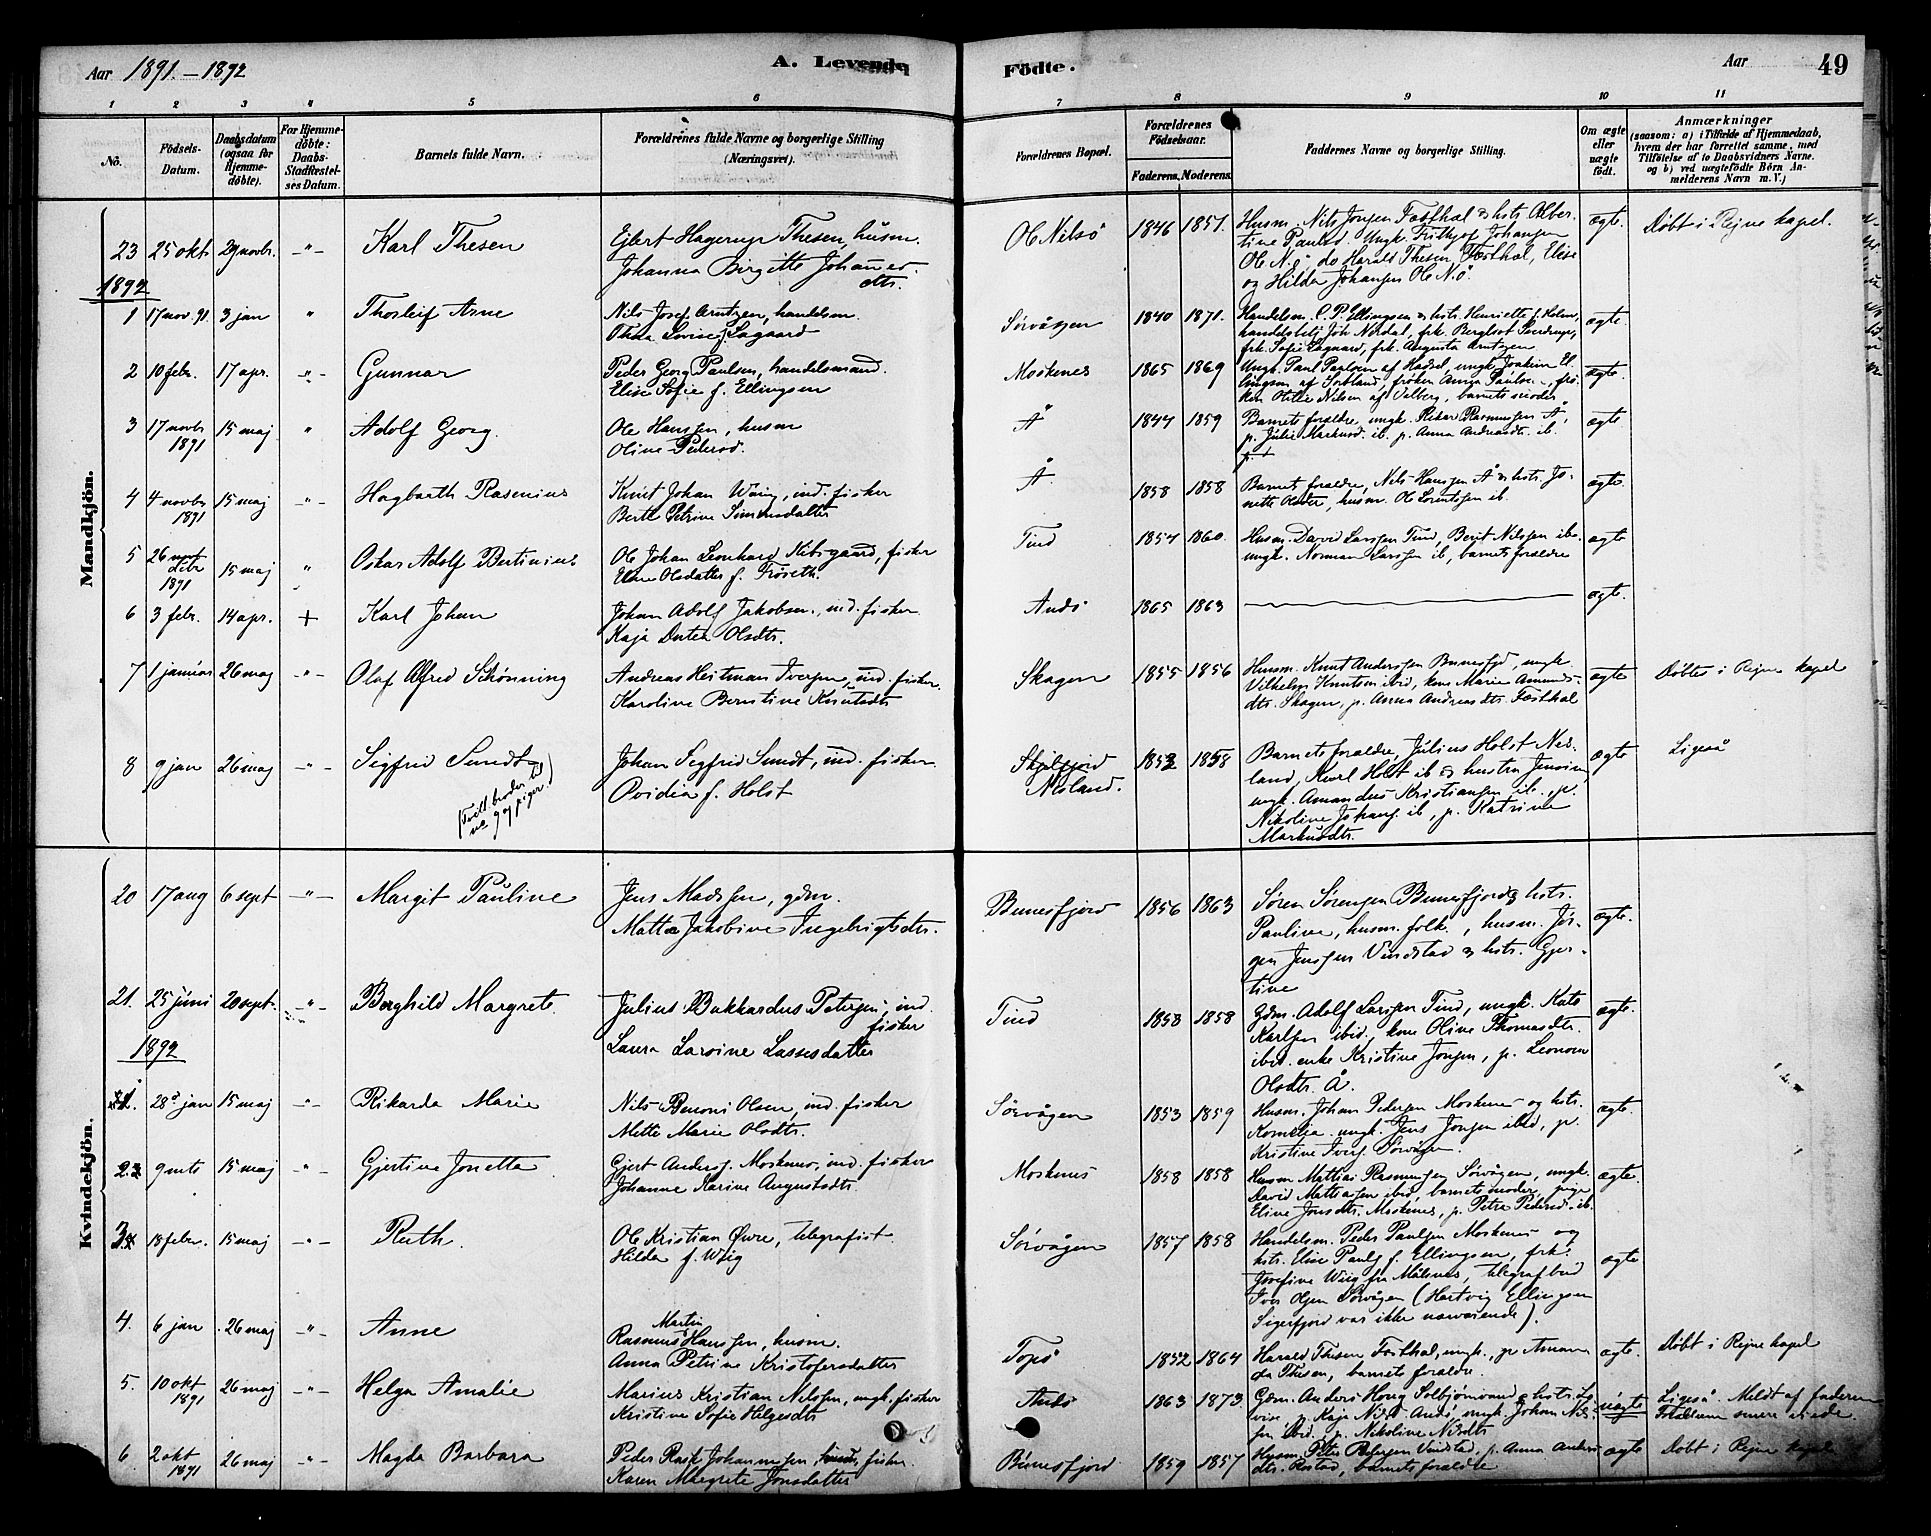 Aar 1891–1892
A. Levende
Födte.
Aar
49
1 2 3 4 5 6 7 8 9 10 11
Nô.
Födsels-Datum.
Daabsdatum (ogsaa for Hjemmedöbte).
For Hjemmedöbte: Daabs-Stadfæstelses Datum.
Barnets fulde Navn.
Forældrenes fulde Navne og borgerlige Stilling (Næringsvei).
Forældrenes Bopæl.
Forældrenes Födselsaar.
Faderens. Moderens.
Faddernes Navne og borgerlige Stilling.
Om ægte eller uægte födt.
Anmærkninger
(saasom: a) i Tilfælde af Hjemmedaab, hvem der har forrettet samme, med Tilföielse af to Daabsvidners Navne. og b) ved uægtefödte Börn Anmelderens Navn m. V.)
Mandkjön.
23 25 okt 29 novbr. –"– Karl Thesen
Ejlert Hagerup Thesen, husm.
Johanna Birgitte Johannesdtr.
Ol Nilsö 1846 1851.
Husm. Nils Jørgen Festhal & hstr. Alber-
tine Paulsd. Ungk. Fritjof Johansen
Ol N.ö do Harald Thesen, Festhal, Elise
og Hilda Johansen Ol N.ö.
ægte. Døbt i Rejne kapel.
1892
1 17 nov. 91. 3 jan " Thorleif Arne
Nils Josef Arntzen, handelsm.
Sørvågen 1840 1871.
Handelsm. C. P. Ellingsen & hstr. Henriette f. Holm,
handelsbetj. Joh. Nordal, frk. Bergljot Sverdrup,
frk. Sofie Lagaard, frk. Augusta Arntzen
ægte.
2 10 febr. 17 apr. –"– Gunnar
Peder Georg Paulsen, handelsmand.
Elise Sofie f. Ellingsen
Moskenes 1865 1869
Ungk. Paul Paulsen af Hadsel, ungk. Joakim El-
lingsen af Sortland, frøken Anna Paulsen, frø-
ken Otilie Nilsen af Valberg, barnets moder
ægte.
3 17 novbr 1891 15 maj " Adolf Georg.
Ole Hansen, husm
Oline Pedersd.
Å 1844 1859
Barnets forældre, ungk. Rikar Rasmussen Å,
p. Julie Markusd. ib. p. Anna Andreasdtr. ib.
ægte
4 4 novbr 1891 15 maj –"– Hagbarth Rasmus
Knut Johan Wiig, ind. fisker
Berit Petrine Simonsdatter
Å 1858 1858
Barnets forældre, Nils Hansen Å & hstr. Jo-
nette Olsdtr, husm. Ole Lorentsen ib.
ægte.
5 26 debr 1891 15 maj " Oskar Adolf Bertinius
Ole Johan Leonhard Kibsgaard, fisker
Elen Olsdatter f. Frøseth.
Tind 1854 1860.
Husm. David Larssen Tind, Berit Nilsen ib.
ungk. Norman Larssen ib, barnets forældre
ægte
6 3 febr. 14 apr. + Karl Johan
Johan Adolf Jakobsen, ind. fisker
Kaja Dortea Olsdtr.
Andö 1865 1863 ægte.
7 1 januar 26 maj –"– Olaf Alfred Schønning
Andreas Heitman Iversen, ind. fisker.
Karoline Berntine Knutsdtr
Skagen 1855 1856
Husm. Knut Anderssen Bunesfjd, ungk.
Vilhelm Knutsen ibid, kone Marie Amunds-
dtr. Skagen, p. Anna Andreasdtr. Festhal
ægte Døbt i Rejne kapel
8 9 jan 26 maj –"– Sigfrid Smidt
(Tvillbroder til no 9 af piger.)
Johan Segfrid Smidt, ind. fisker.
Ovidia f. Holst
Skjelfjord
Nesland. 1852 1858
Barnets forældre, Julius Holst Nes-
land, Karl Holst ib & hustru Jensine
ungk. Amandus Kristiansen ib., p.
Nikoline Johans. ib, p. Katrine
Markusdtr.
ægte Ligeså
Kvindekjön.
20 17 aug 6 sept –"– Margit Pauline
Jens Madssen, gdm.
Matta Jakobine Ingebrigtsdtr.
Bunesfjord 1856 1863
Søren Sørensen Bunesfjord & hstr.
Pauline, husm. folk., husm. Jør-
gen Jenssen Vindstad & hstr. Gjer-
tine
ægte.
21. 25 juni 20 sept. –"– Borghild Margrete
Julius Bukhardus Petersen, ind. fisker
Laura Lavine Lassesdatter
Tind 1858 1858
Gdm. Adolf Larssen Tind, ungk. Kato
Karlsen ibid, kone Oline Thomasdtr.
ibid. enke Kristine Jonsen, p. Leonora
Olsdtr. Å.
ægte.
1892
1. 28 jan 15 maj –"– Rikarda Marie
Nils Benoni Olsen, ind. fisker
Mette Marie Olsdtr.
Sørvågen 1853 1859
Husm. Johan Pedersen Moskenes og hstr.
Kornelia. ungk. Jens Jonsen ibid, p.
Kristine Ivers. Sørvågen.
ægte.
2 9 mts 15 maj –"– Gjertine Jonetta
Gjert Anders. Moskenes, ind. fisker
Johanne Karine Augustsdtr.
Moskenes 1858 1858
Husm Mathias Rasmussen Sørvågen, ungk.
David Mathiassen ibid, barnets moder, pige
Eline Jonsdtr. Moskenes, p. Petra Pedersd. ib.
ægte.
3 18 febr. 15 maj –"– Ruth.
Ole Kristian Øvre, telegrafist.
Hilda f. Wiig
Sørvågen 1857 1858
Handelsm. Peder Paulsen Moskenes og
hstr. Elise Pauls. f. Ellingsen, frk.
Josefine Wiig fra Målsnes, telegrafbud
Iver Olsen Sørvågen (Hartvig Ellingsen
Sigerfjord var ikke nærværende).
ægte
4. 6 jan 26 maj –"– Anne
Rasmus Martin Hanssen, husm.
Anna Petrine Kristofersdatter
Topö 1852 1864
Harald Thesen Festhal, ungk., p. Aman-
da Thesen, barnets forældre.
ægte. Døbt i Rejne kapel
5. 10 okt 1891 26 maj –"– Helga Amalie
Marius Kristian Nilssen, ungk, fisker
Kristine Sofie Helgesdtr
Andö 1863 1873.
Gdm. Anders Houg Solbjørnvand & hstr. Lo-
vise, p. Kaja Nilsd. Andö, ungk. Johan Nils-
sen ibid., p. Nikoline Nilsdtr
uægte Ligeså. Meldt af faderen
6. 2 okt 1891 26 maj –"– Magda Barbara
Peder Rask Johannesen, fisker.
Karen Margrete Jonsdatter
Bunesfjord 1859 1857
Husm. Peter Pedersen Vindstad, p. Anna Anders-
dtr. Rostad, barnets forældre
ægte Døbt i Rejne kapel